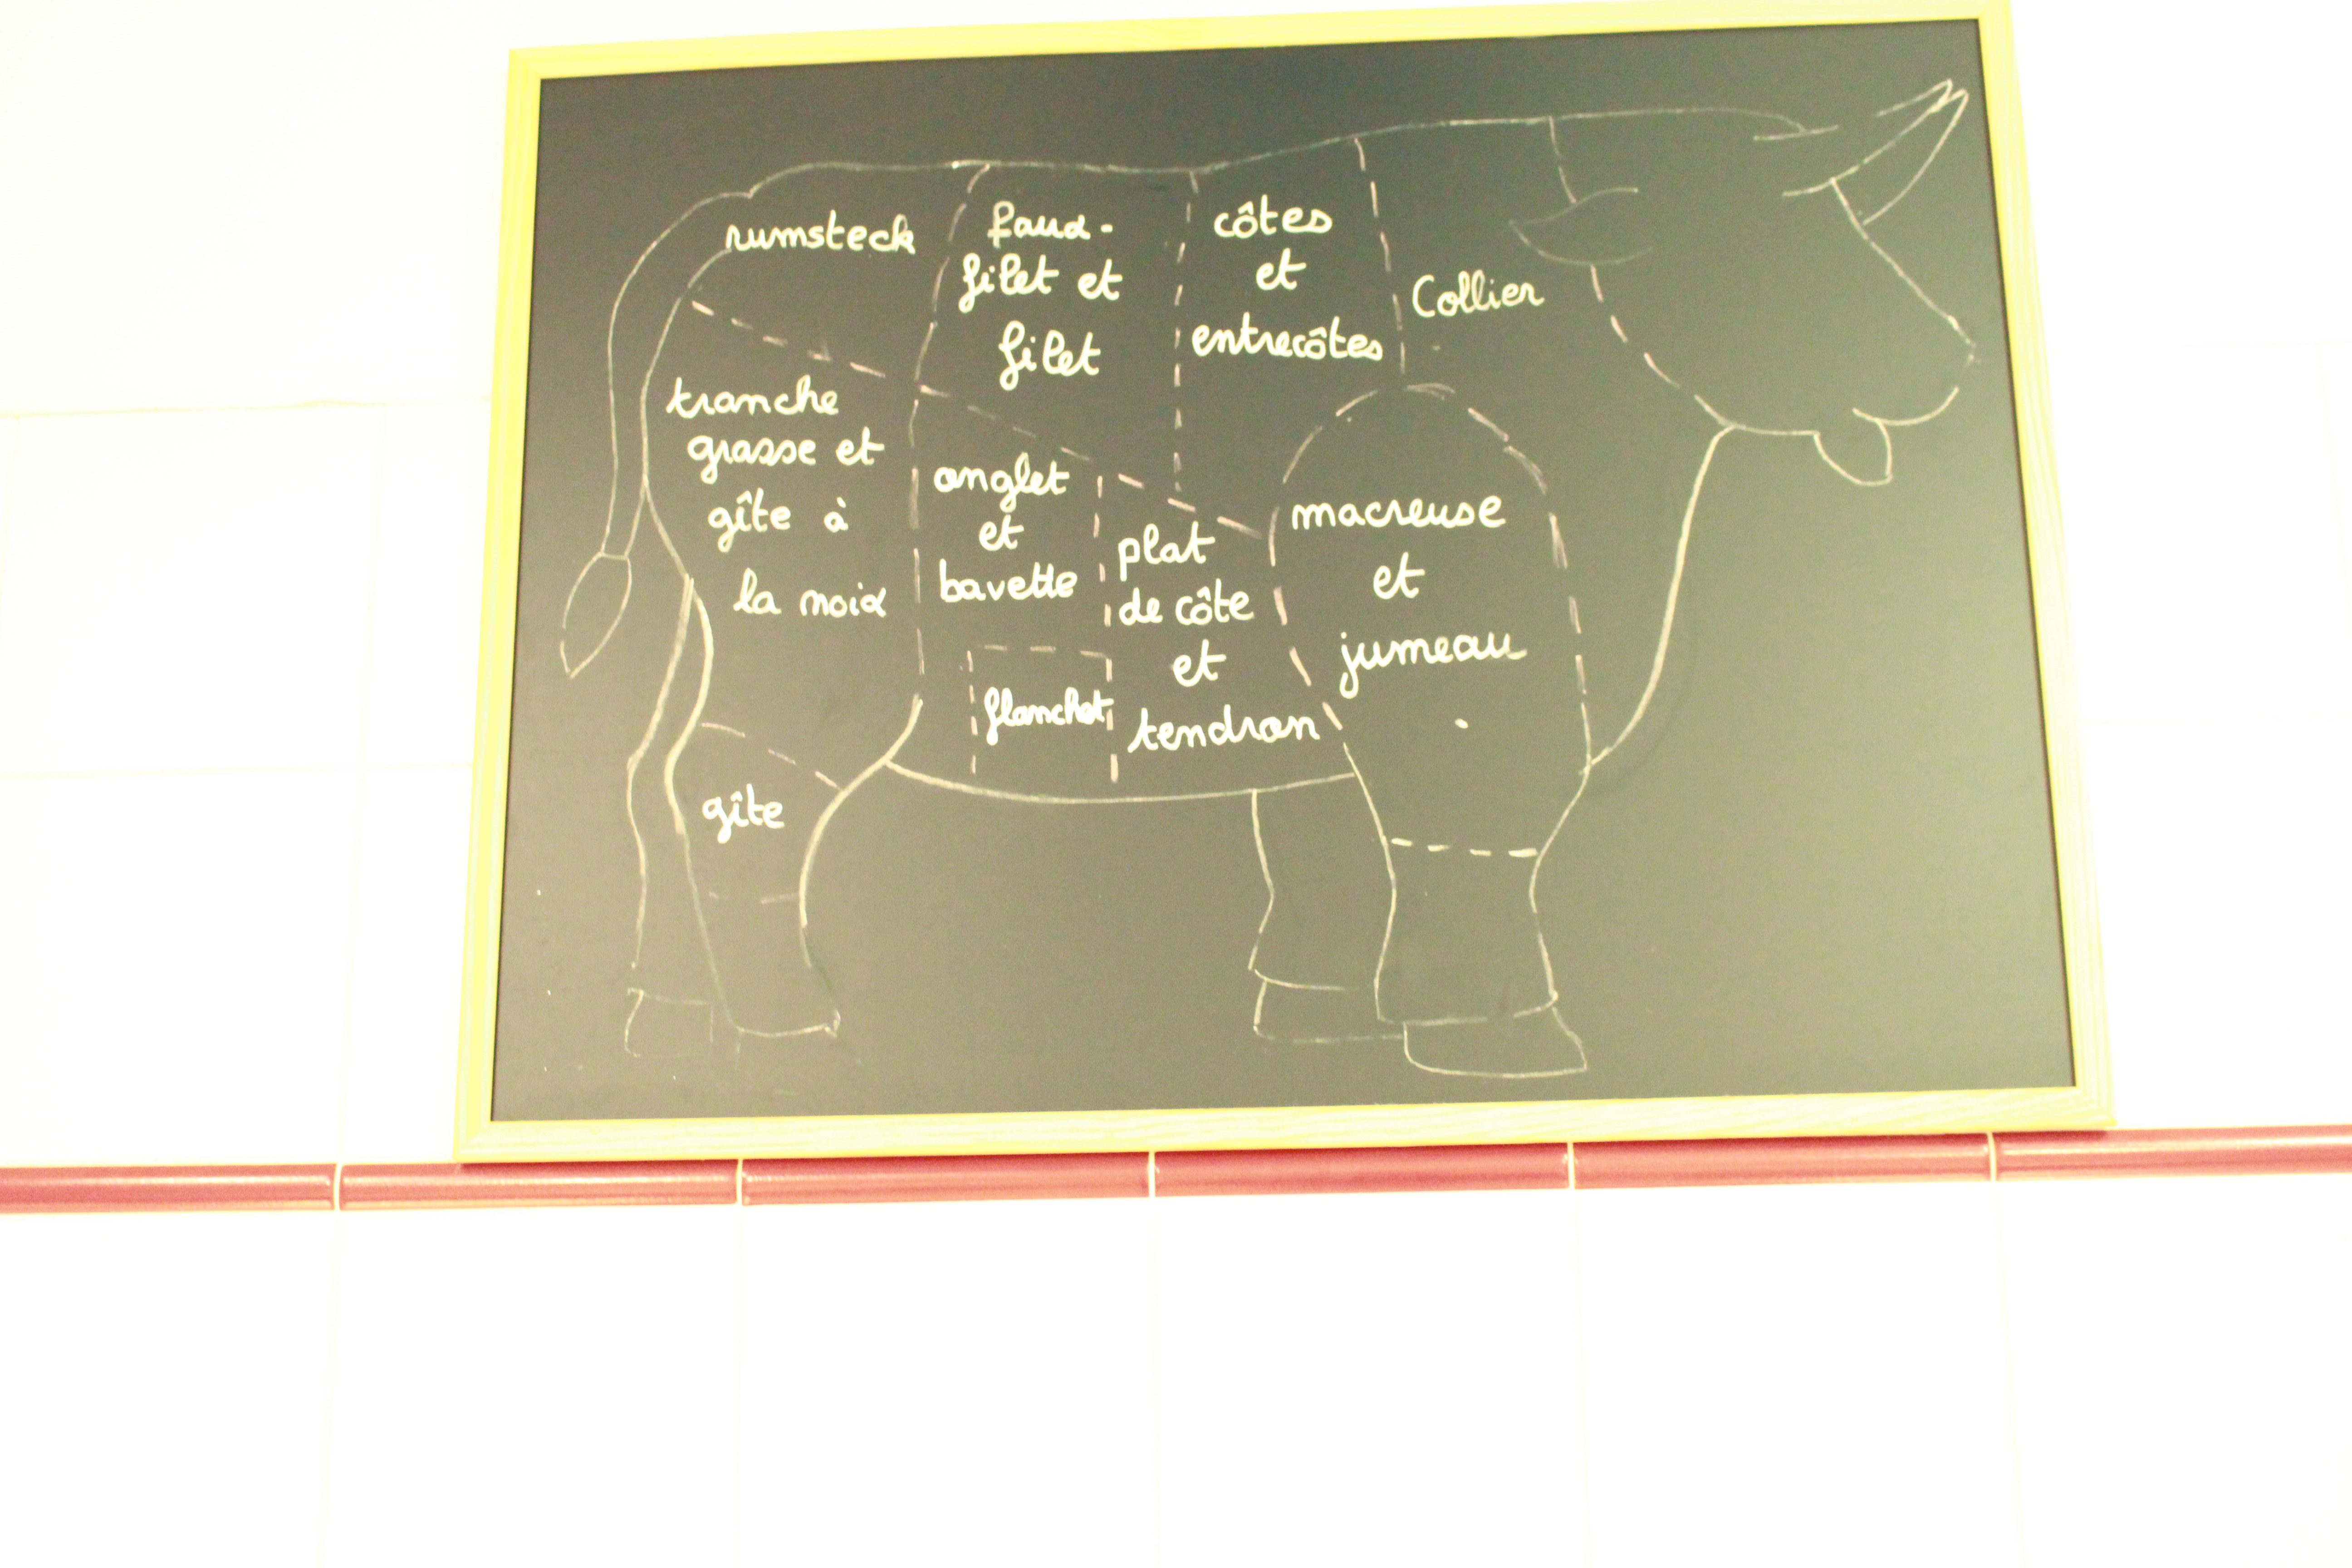 rumsteck
faux-
filet et
filet
côtes
et
entrecôtes
Collier
tranche
grasse et
gîte à
la noix
onglet
et
bavette
flanchet
plat
de côte
et
tendron
macreuse
et
jumeau
gîte